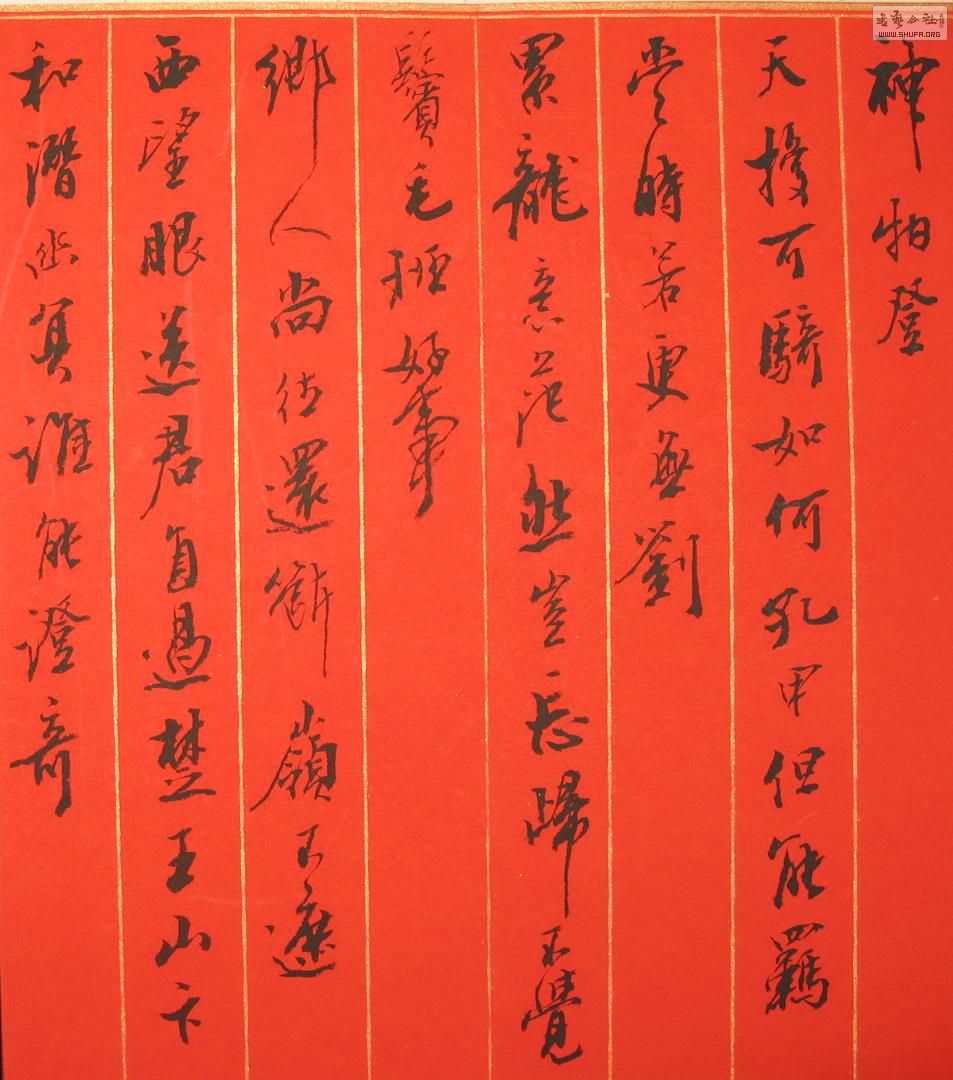 神物登
天擾可騎如何孔甲但能羈
當時若更無劉
累龍意茫然豈忘歸不覺
鬢毛班好事
鄉人尚往還斷嶺不遮
西望眼送君直過楚王山卞
和潛幽冥誰能證奇
书艺公社
WWW.SHUFA.ORG